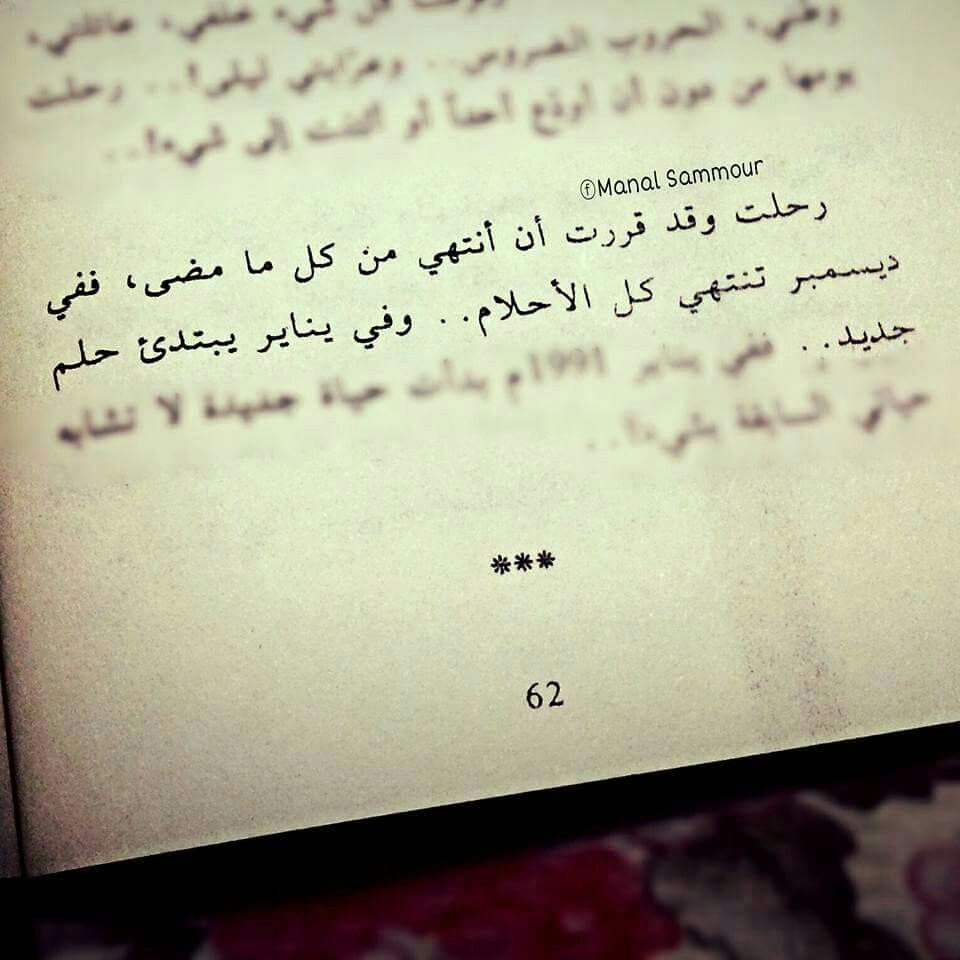 وطني، الحروب الضروس.. وعرّابتي ليلى!.. رحلت
يومها من دون أن أودّع أحداً أو ألتفت إلى شيء!..
Manal Sammour
رحلت وقد قررت أن أنتهي من كل ما مضى، ففي
ديسمبر تنتهي كل الأحلام.. وفي يناير يبتدئ حلم
جديد.. ففي يناير 1991م بدأت حياة جديدة لا تشابه
حياتي السابقة بشيء!..
***
62